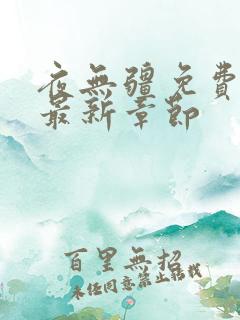 夜無疆免費
最新章節
百里無招
未任同意禁止轉載